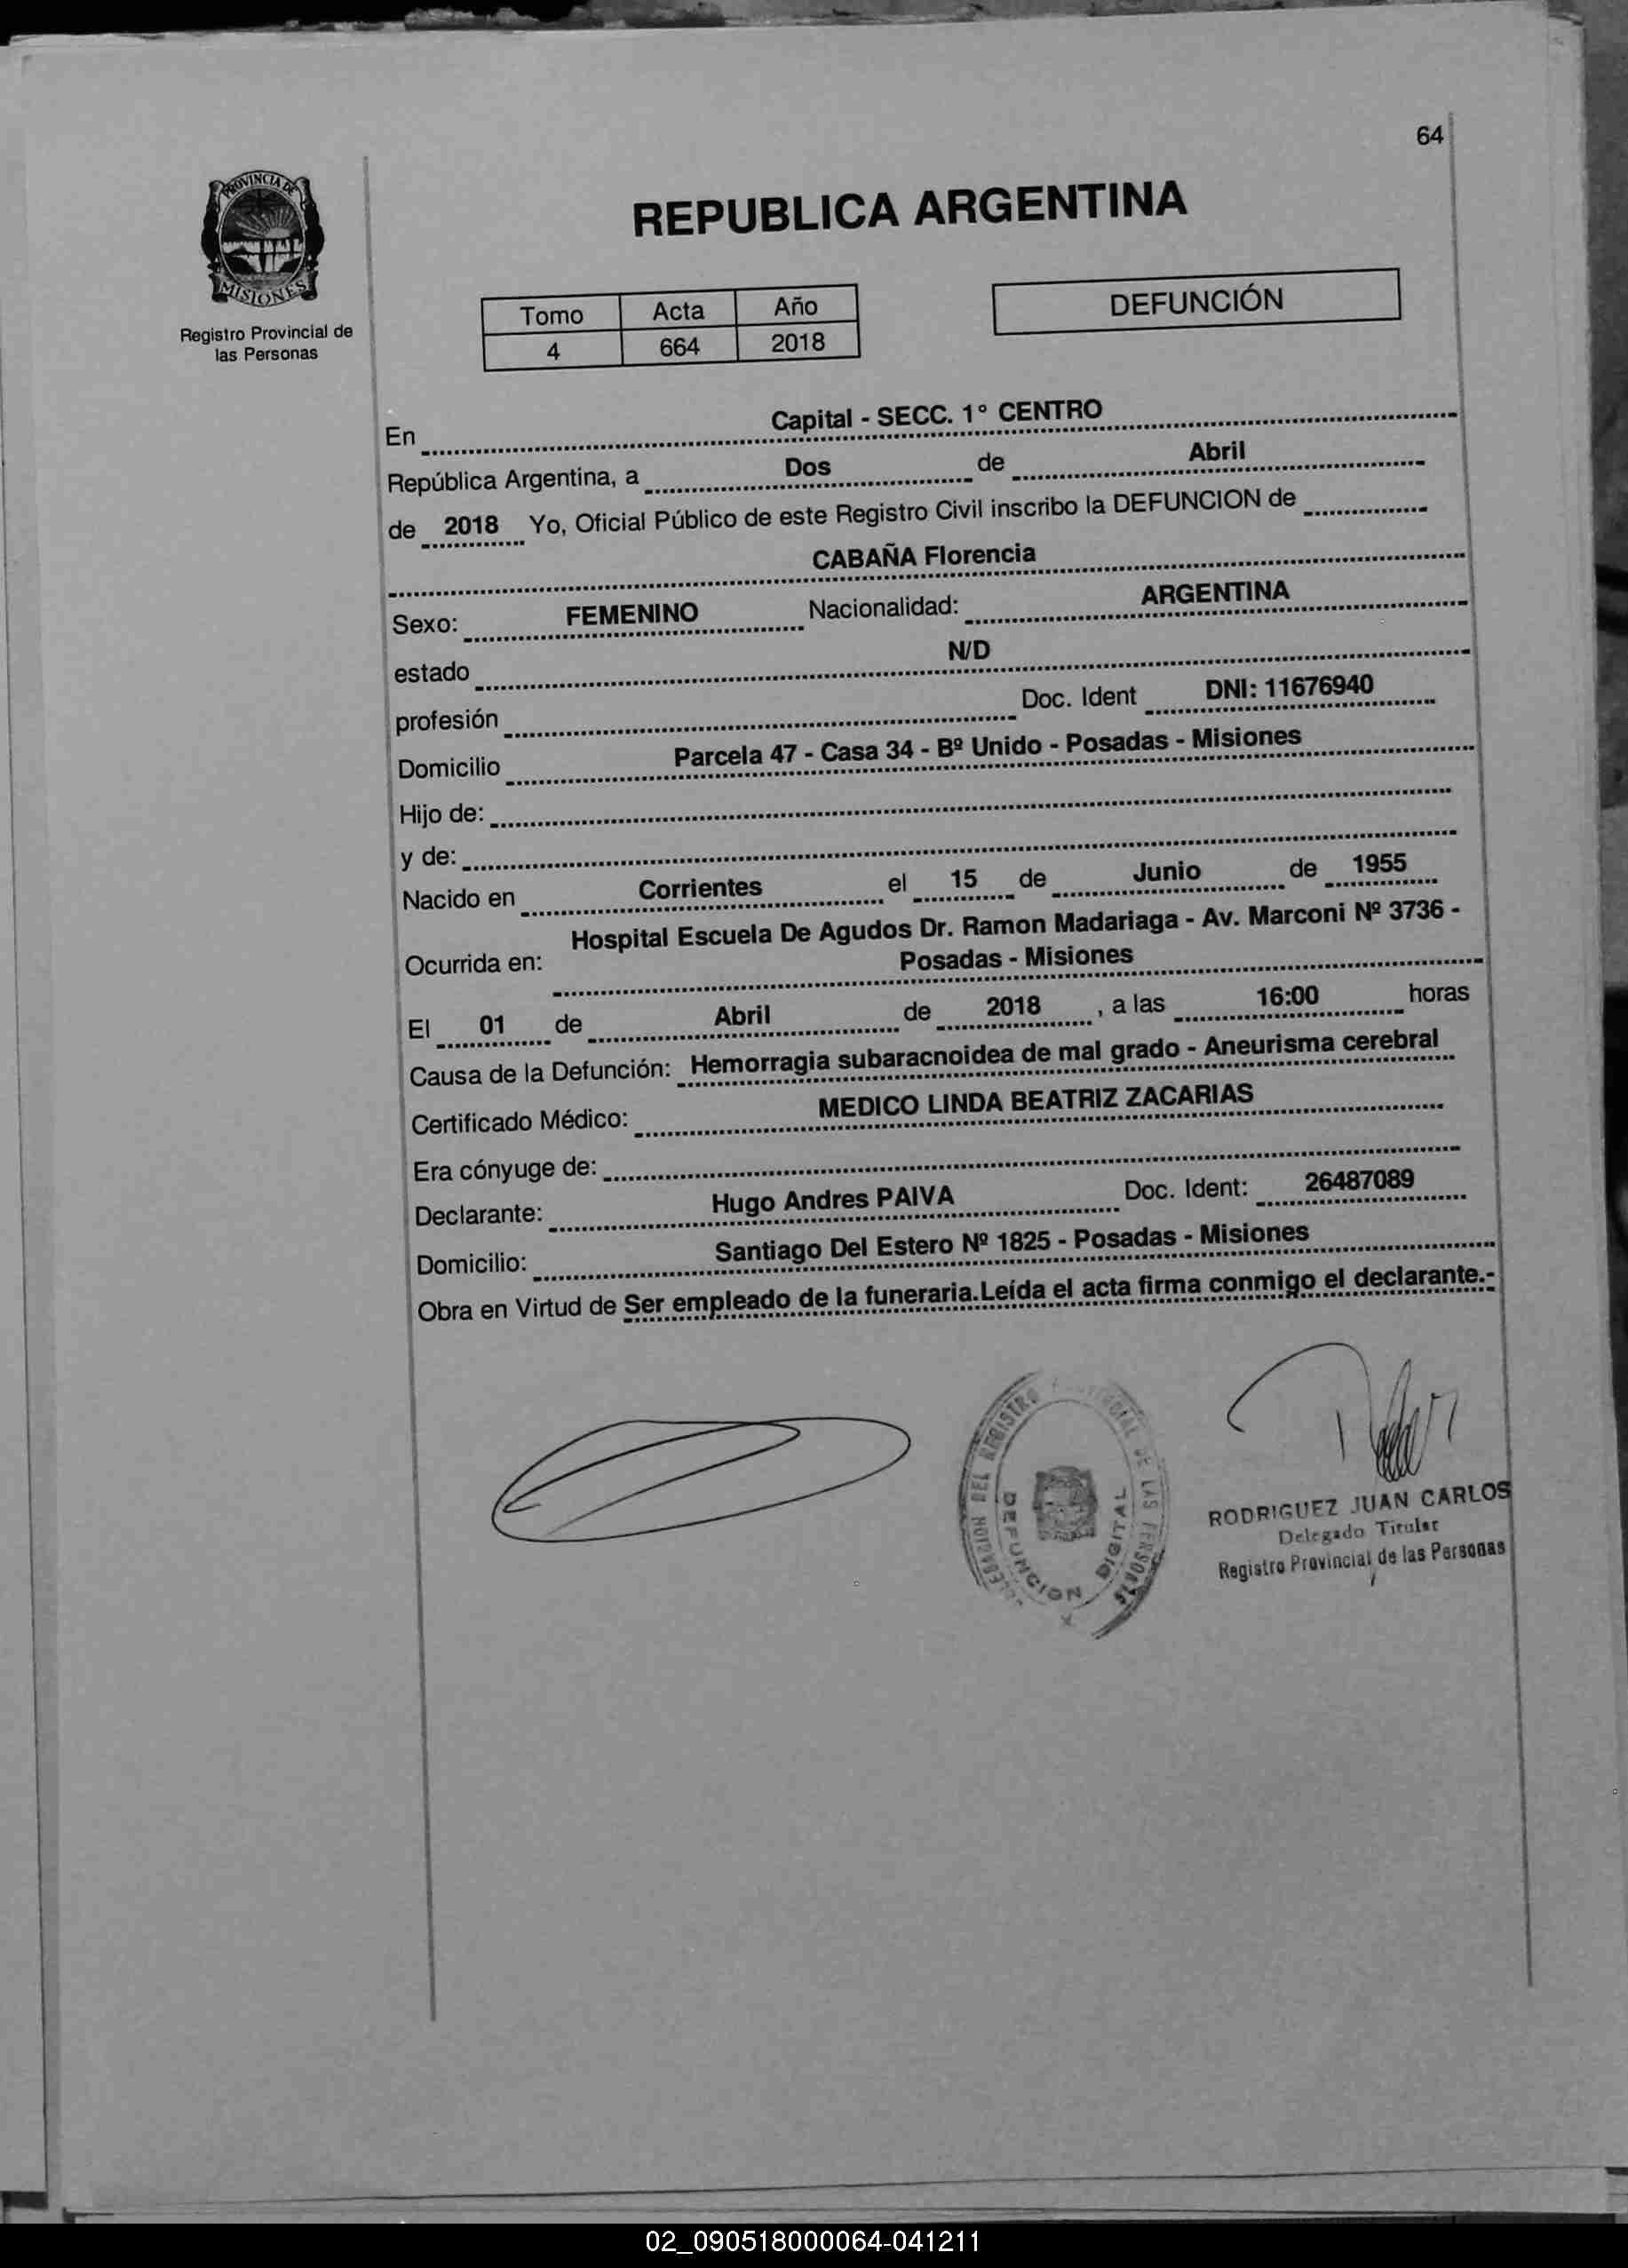 64
PROVINCIA DE
MISIONES
Registro Provincial de
las Personas
REPUBLICA ARGENTINA
Tomo Acta Año
4 664 2018
DEFUNCIÓN
En Capital - SECC. 1° CENTRO
República Argentina, a Dos de Abril
de 2018 Yo, Oficial Público de este Registro Civil inscribo la DEFUNCION de
CABAÑA Florencia
Sexo: FEMENINO Nacionalidad: ARGENTINA
estado N/D
profesión Doc. Ident DNI: 11676940
Domicilio Parcela 47 - Casa 34 - Bº Unido - Posadas - Misiones
Hijo de:
y de:
Nacido en Corrientes el 15 de Junio de 1955
Hospital Escuela De Agudos Dr. Ramon Madariaga - Av. Marconi Nº 3736 -
Ocurrida en: Posadas - Misiones
El 01 de Abril de 2018 , a las 16:00 horas
Causa de la Defunción: Hemorragia subaracnoidea de mal grado - Aneurisma cerebral
Certificado Médico: MEDICO LINDA BEATRIZ ZACARIAS
Era cónyuge de:
Declarante: Hugo Andres PAIVA Doc. Ident: 26487089
Domicilio: Santiago Del Estero Nº 1825 - Posadas - Misiones
Obra en Virtud de Ser empleado de la funeraria.Leída el acta firma conmigo el declarante.-
DEL REGISTRO DE LAS PERSONAS
DEFUNCION DIGITAL
RODRIGUEZ JUAN CARLOS
Delegado Titular
Registro Provincial de las Personas
02_090518000064-041211